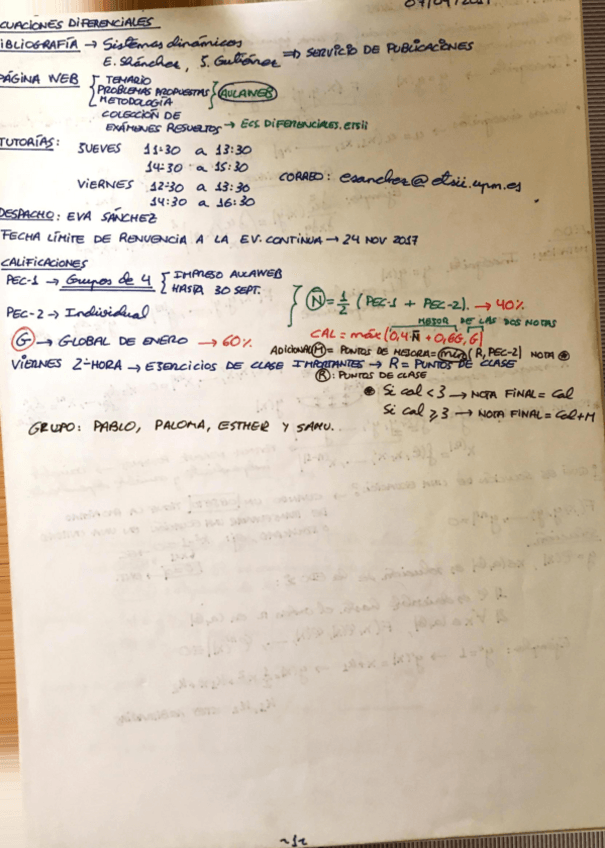 CUACIONES DIFERENCIALES
IBLIOGRAFÍA → Sistemas dinámicos
E. Sánchez, S. Gutiérrez ⇒ SERVICIO DE PUBLICACIONES
PÁGINA WEB TEMARIO
PROBLEMAS PROPUESTAS AULAWEB
METODOLOGÍA
COLECCIÓN DE
EXÁMENES RESUELTOS → ECS. DIFERENCIALES. ETSII
TUTORÍAS: JUEVES 11:30 a 13:30
14:30 a 15:30
VIERNES 12:30 a 13:30 CORREO: esanchez@etsii.upm.es
14:30 a 16:30
DESPACHO: EVA SÁNCHEZ
FECHA LÍMITE DE RENUENCIA A LA EV. CONTINUA → 24 NOV 2017
CALIFICACIONES
PEC-1 → Grupos de 4 IMPRESO AULAWEB
HASTA 30 SEPT.
N = 1/2 (PEC-1 + PEC-2). → 40%
PEC-2 → Individual
MEJOR DE LAS DOS NOTAS
G → GLOBAL DE ENERO → 60% CAL = máx (0,4N + 0,6G, G)
ADICIONAL M = PUNTOS DE MEJORA = mín (R, PEC-2) NOTA
VIERNES 2ª HORA → EJERCICIOS DE CLASE IMPORTANTES → R = PUNTOS DE CLASE
R: PUNTOS DE CLASE
Si cal < 3 → NOTA FINAL = Cal
Si cal ≥ 3 → NOTA FINAL = Cal + M
GRUPO: PABLO, PALOMA, ESTHER Y SAMU.
~1~